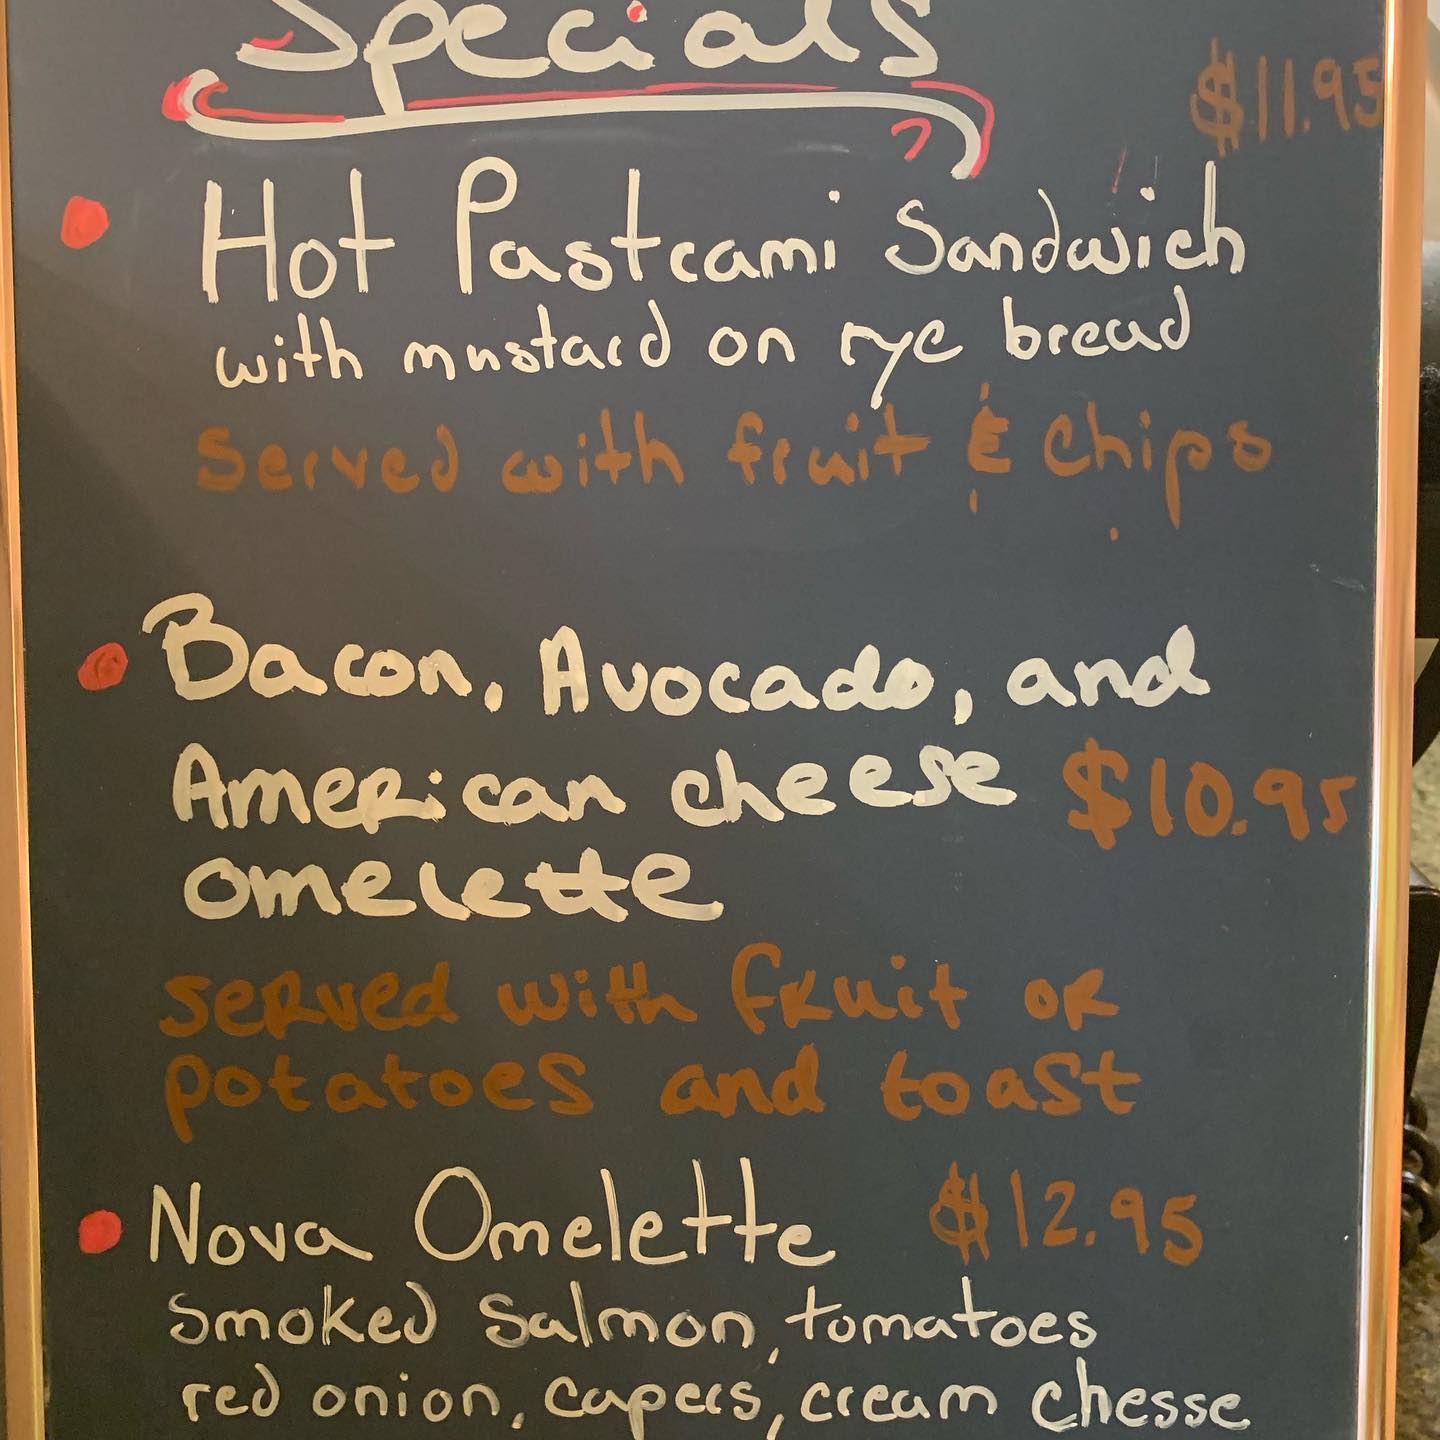 Specials
$11.95
Hot Pastrami Sandwich
with mustard on rye bread
served with fruit & chips
Bacon, Avocado, and
American cheese $10.95
omelette
served with fruit or
potatoes and toast
Nova Omelette $12.95
smoked salmon, tomatoes
red onion, capers, cream chesse